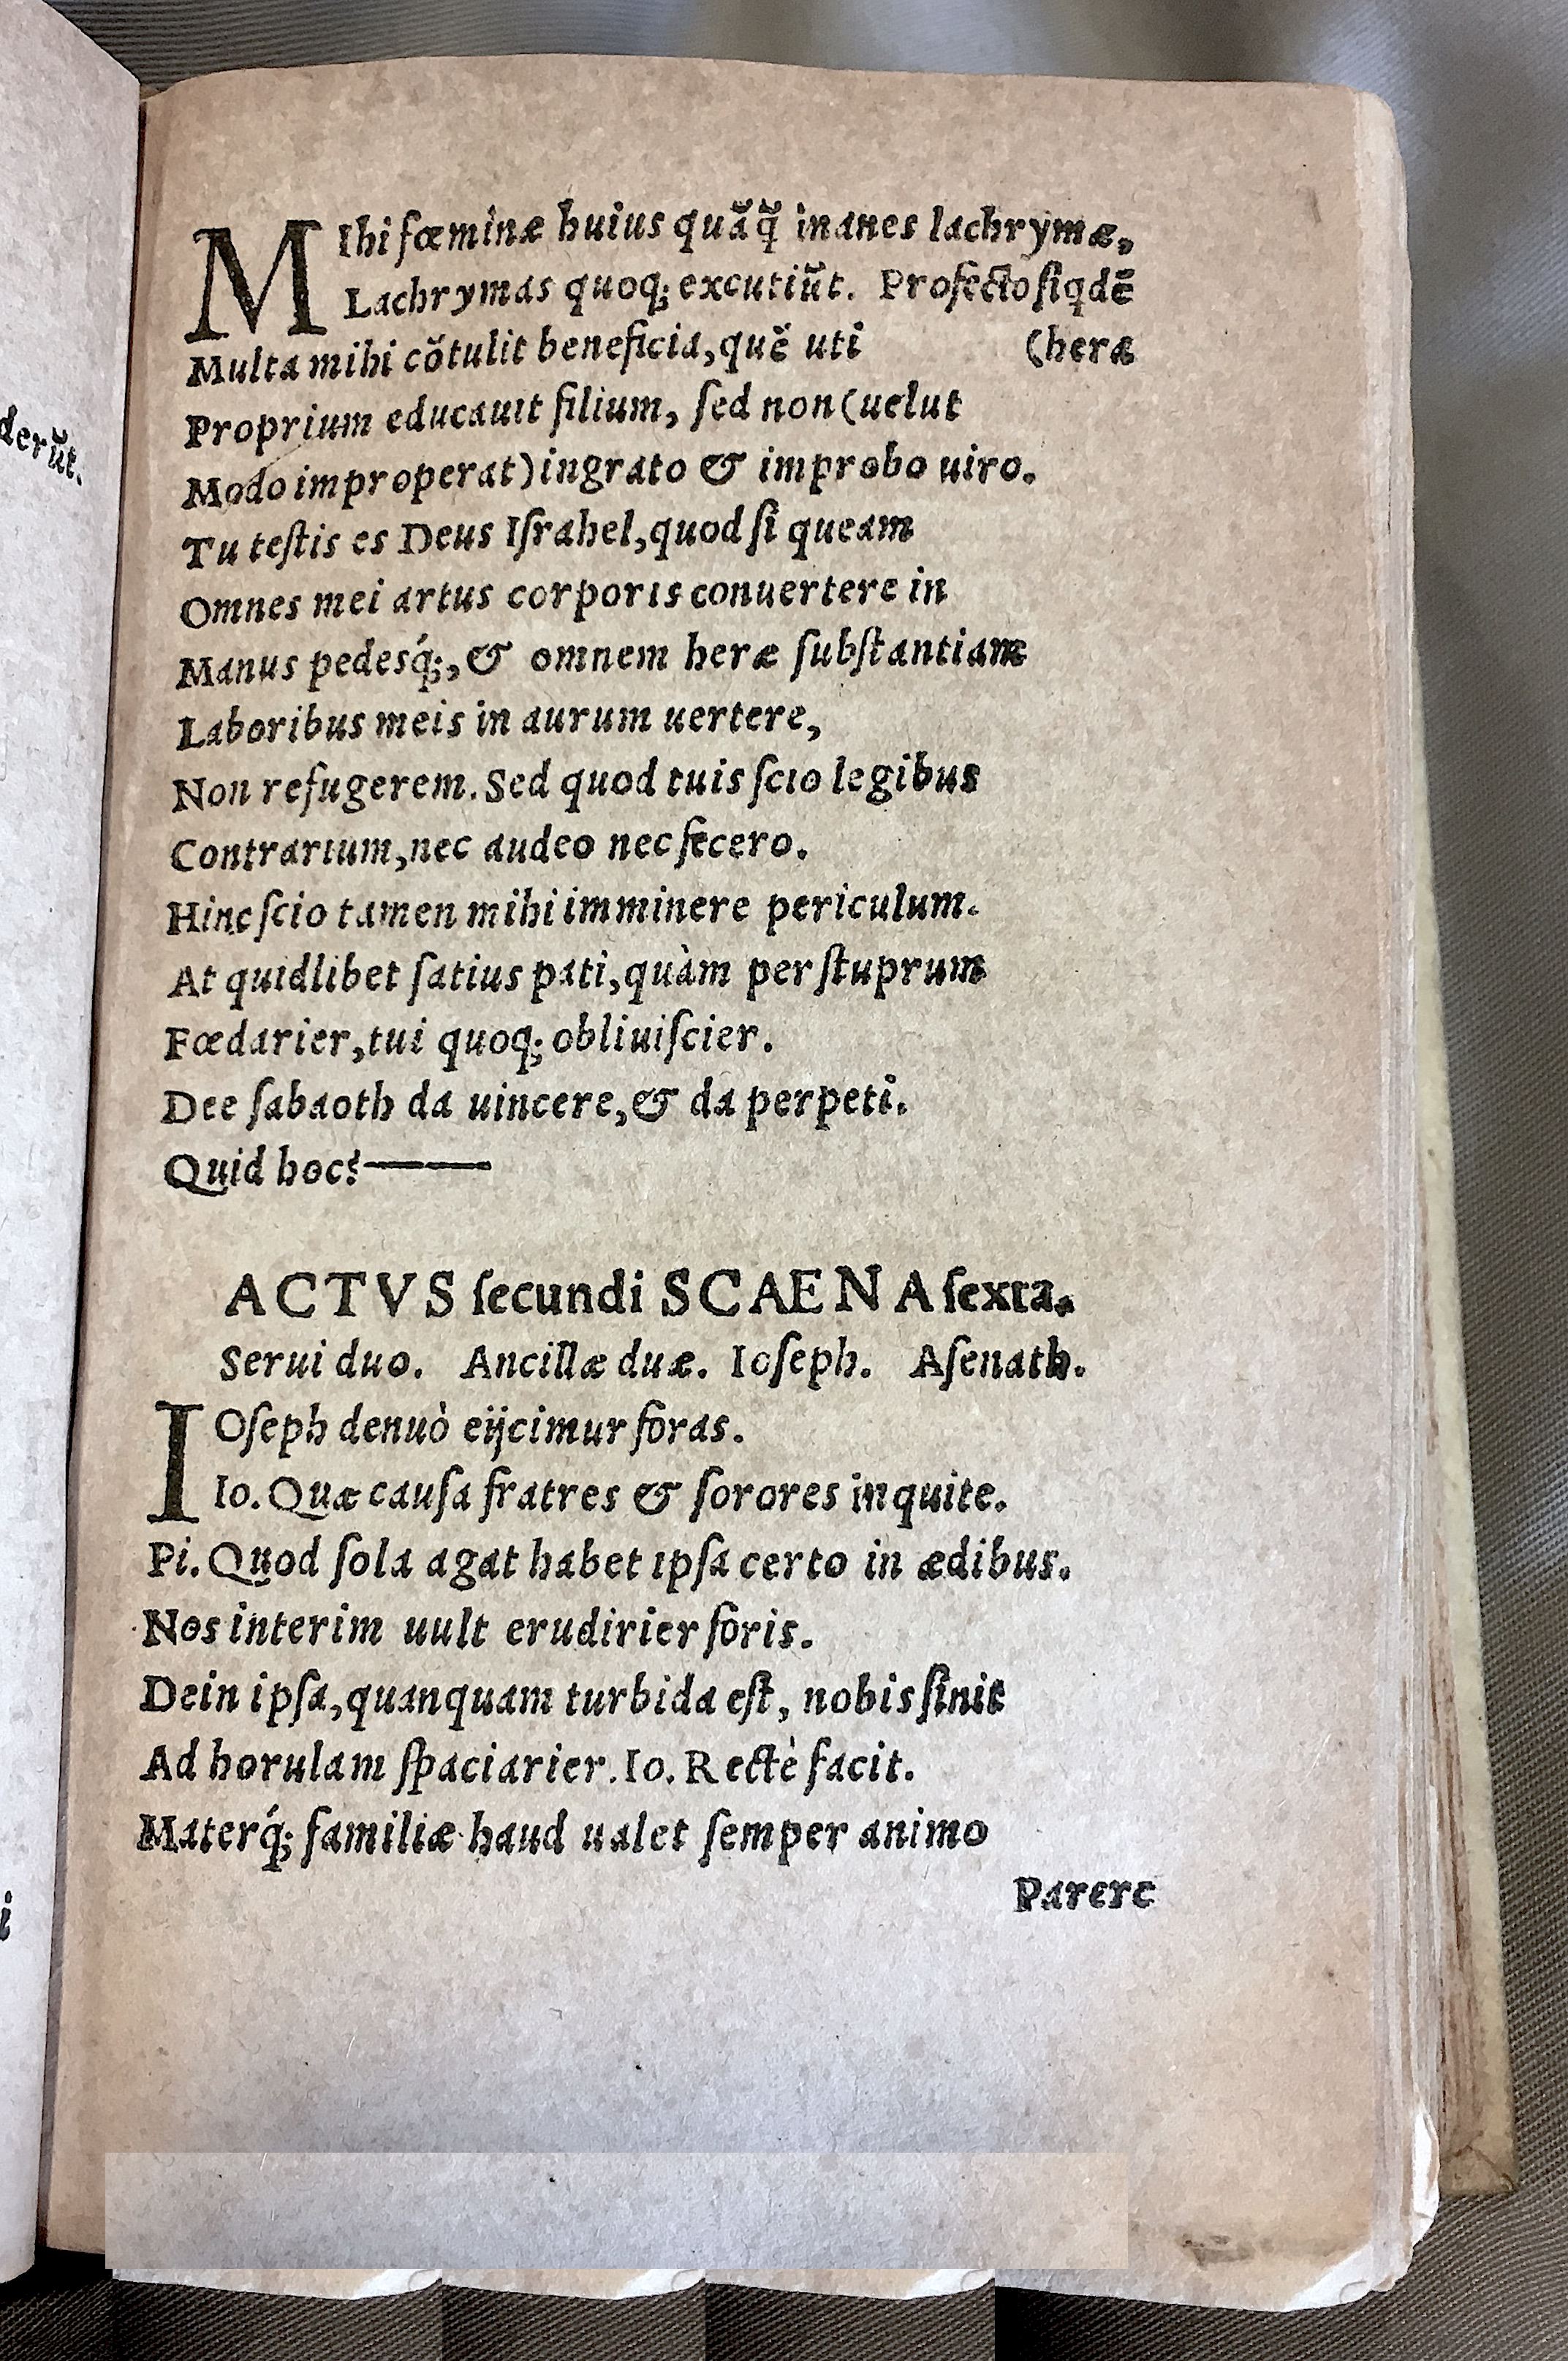 MIhi fœminæ huius quãq̃ inanes lachrymæ,
Lachrymas quoq; excutiũt. Profecto ſiqdẽ
Multa mihi cõtulit beneficia, quẽ uti (hera
Proprium educauit filium, ſed non (uelut
Modo improperat) ingrato & improbo uiro.
Tu teſtis es Deus Iſrahel, quod ſi queam
Omnes mei artus corporis conuertere in
Manus pedesq́;, & omnem heræ ſubſtantiam
Laboribus meis in aurum uertere,
Non refugerem. Sed quod tuis ſcio legibus
Contrarium, nec audeo nec fecero.
Hinc ſcio tamen mihi imminere periculum.
At quidlibet ſatius pati, quàm per ſtuprum
Fœdarier, tui quoq; obliuiſcier.
Dee ſabaoth da uincere, & da perpeti.
Quid hoc? ———
ACTVS ſecundi SCAENA ſexta.
Serui duo. Ancillæ duæ. Ioſeph. Aſenath.
IOſeph denuò eijcimur foras.
Io. Quæ cauſa fratres & ſorores inquite.
Pi. Quod ſola agat habet ipſa certo in ædibus.
Nos interim uult erudirier foris.
Dein ipſa, quanquam turbida eſt, nobis ſinit
Ad horulam ſpaciarier. Io. Rectè facit.
Materq́; familiæ haud ualet ſemper animo
Parere
derũt.
i